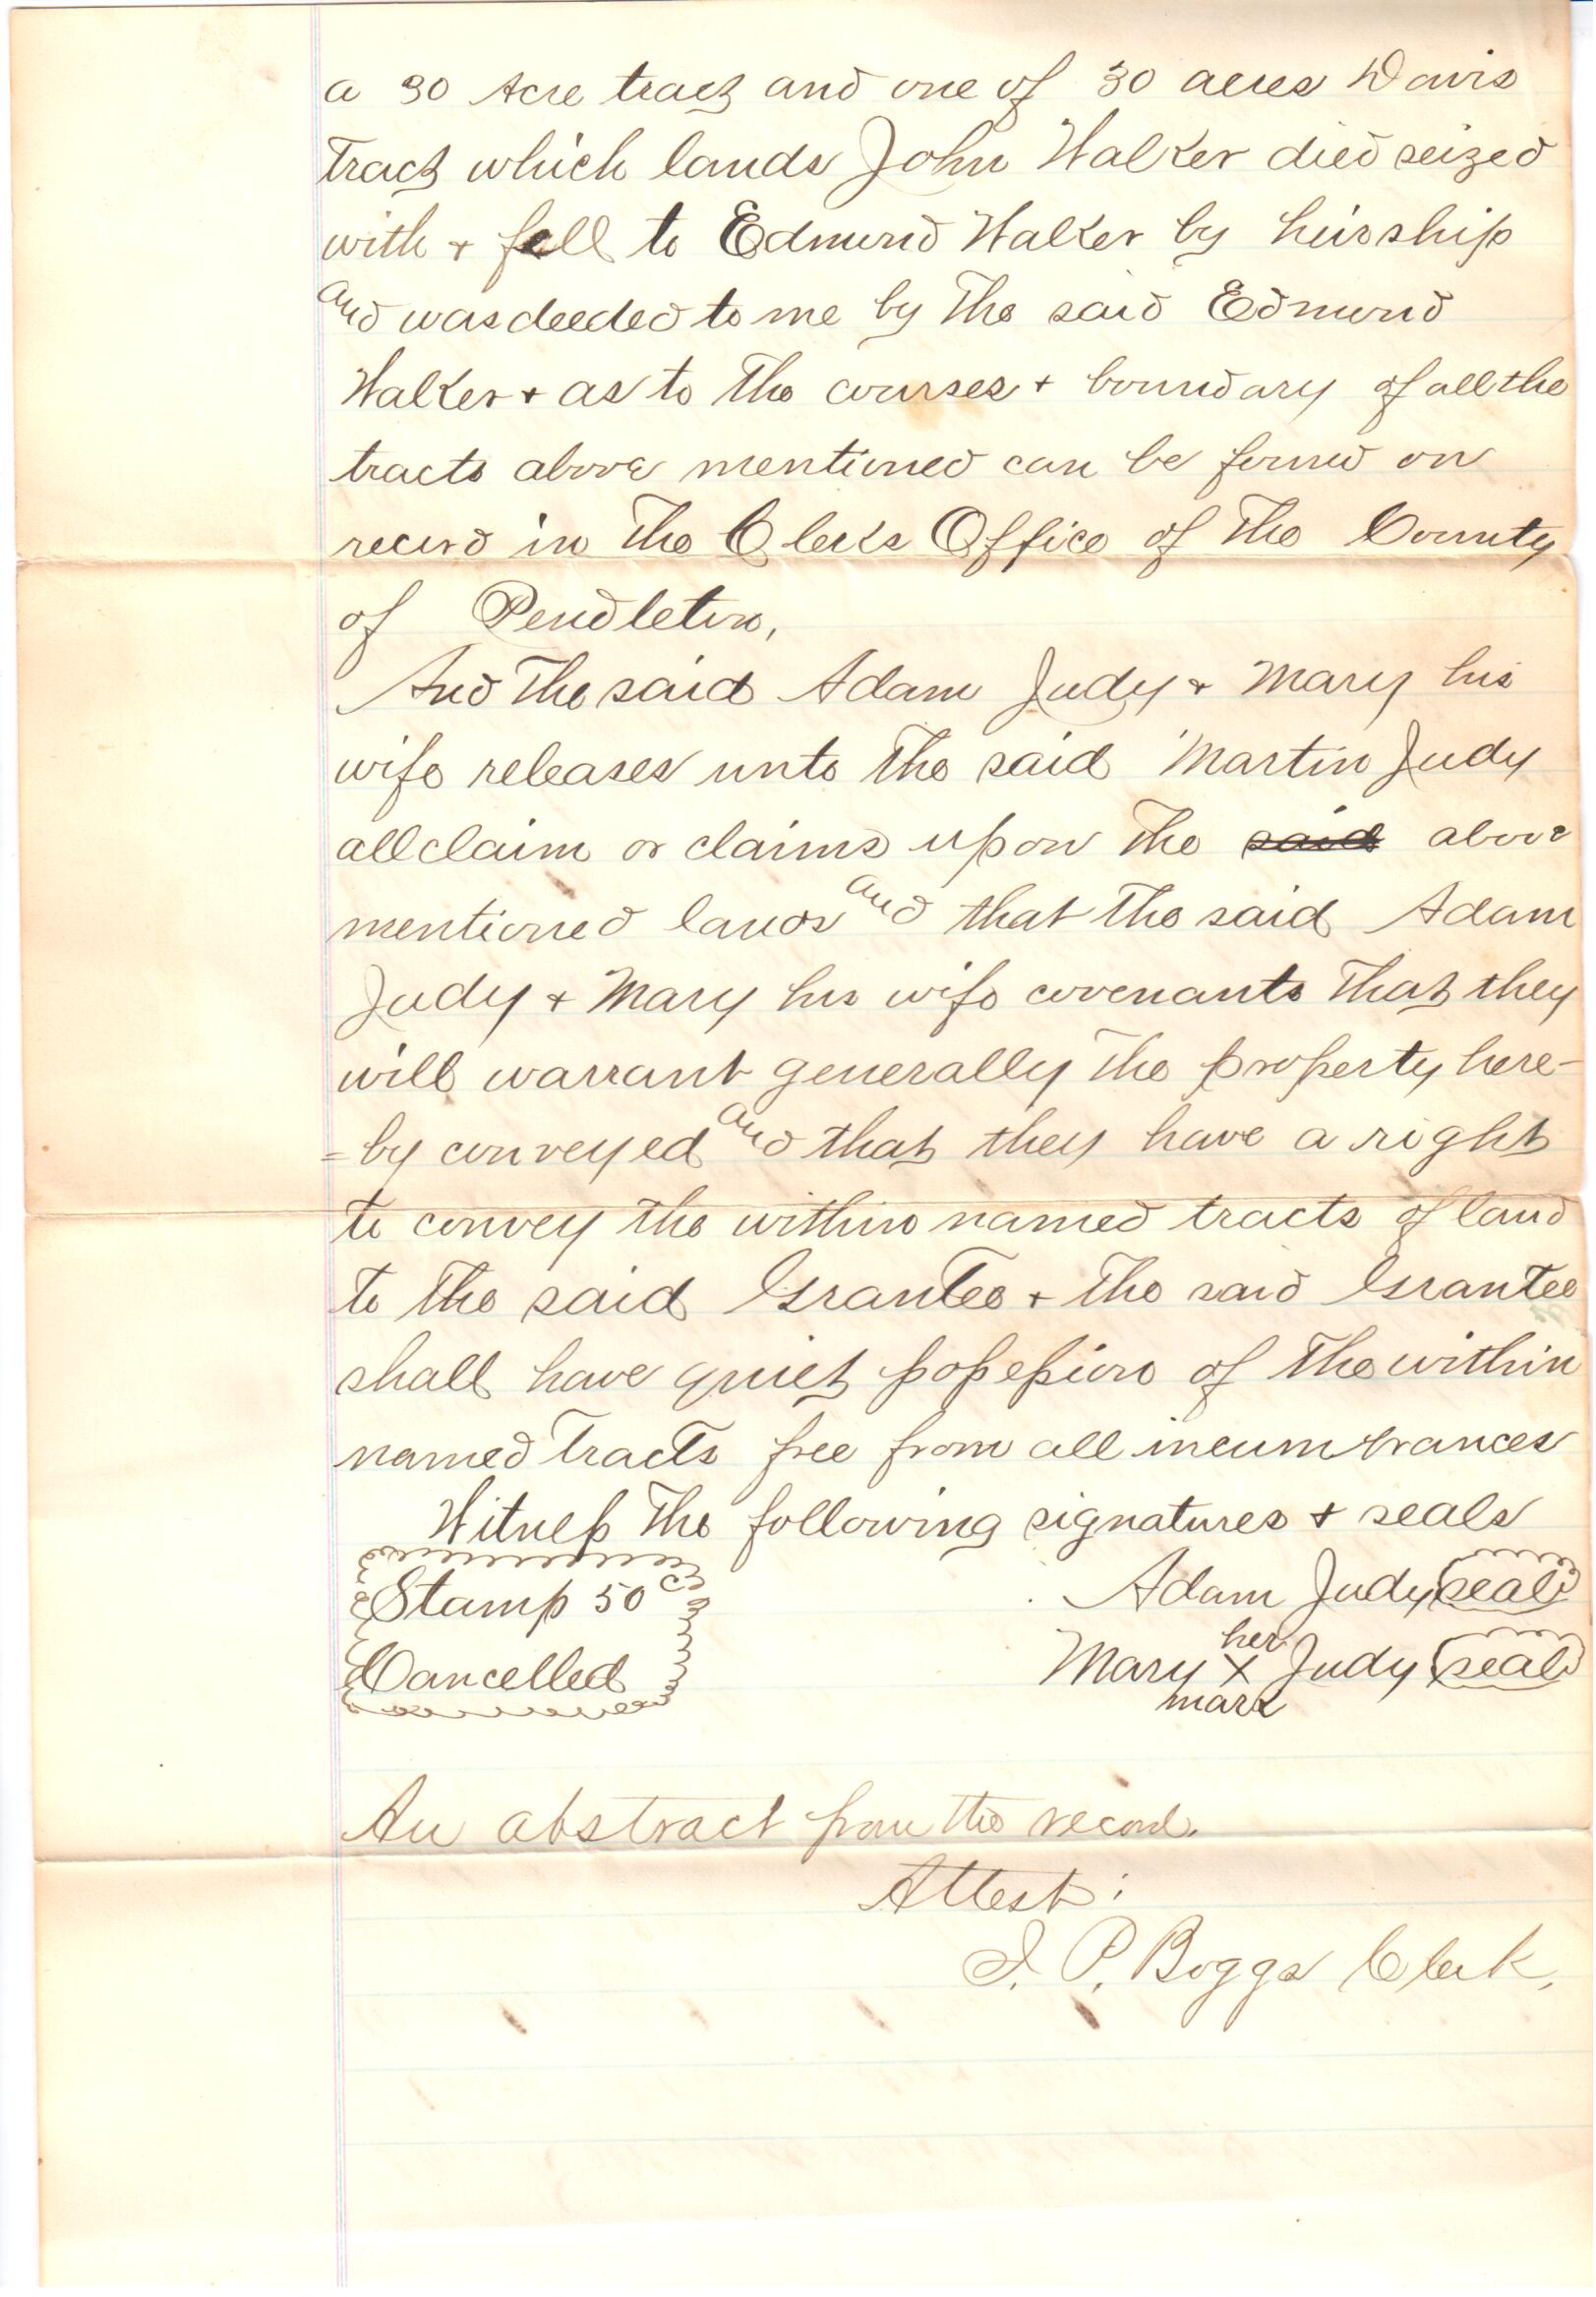 a 30 Acre tract and one of 30 acres Davis
Tract which lands John Walker died seized
with + fell to Edmund Walker by heirship
and was deeded to me by The said Edmund
Walker + as to The courses + boundary of all the
tracts above mentioned can be found on
record in The Clerks Office of The County
of Pendleton,
And The said Adam Judy + Mary his
wife releases unto The said Martin Judy
all claim or claims upon The said above
mentioned lands and that The said Adam
Judy + Mary his wife covenants That they
will warrant generally The property here-
=by conveyed and that they have a right
to convey the within named tracts of land
to The said Grantee + The said Grantee
shall have quiet possession of The within
named Tracts free from all incumbrances
Witness The following signatures + seals
Stamp 50c
Cancelled
Adam Judy seal
her
Mary X Judy seal
mark
An abstract from the record.
Attest:
I. P. Boggs Clerk,